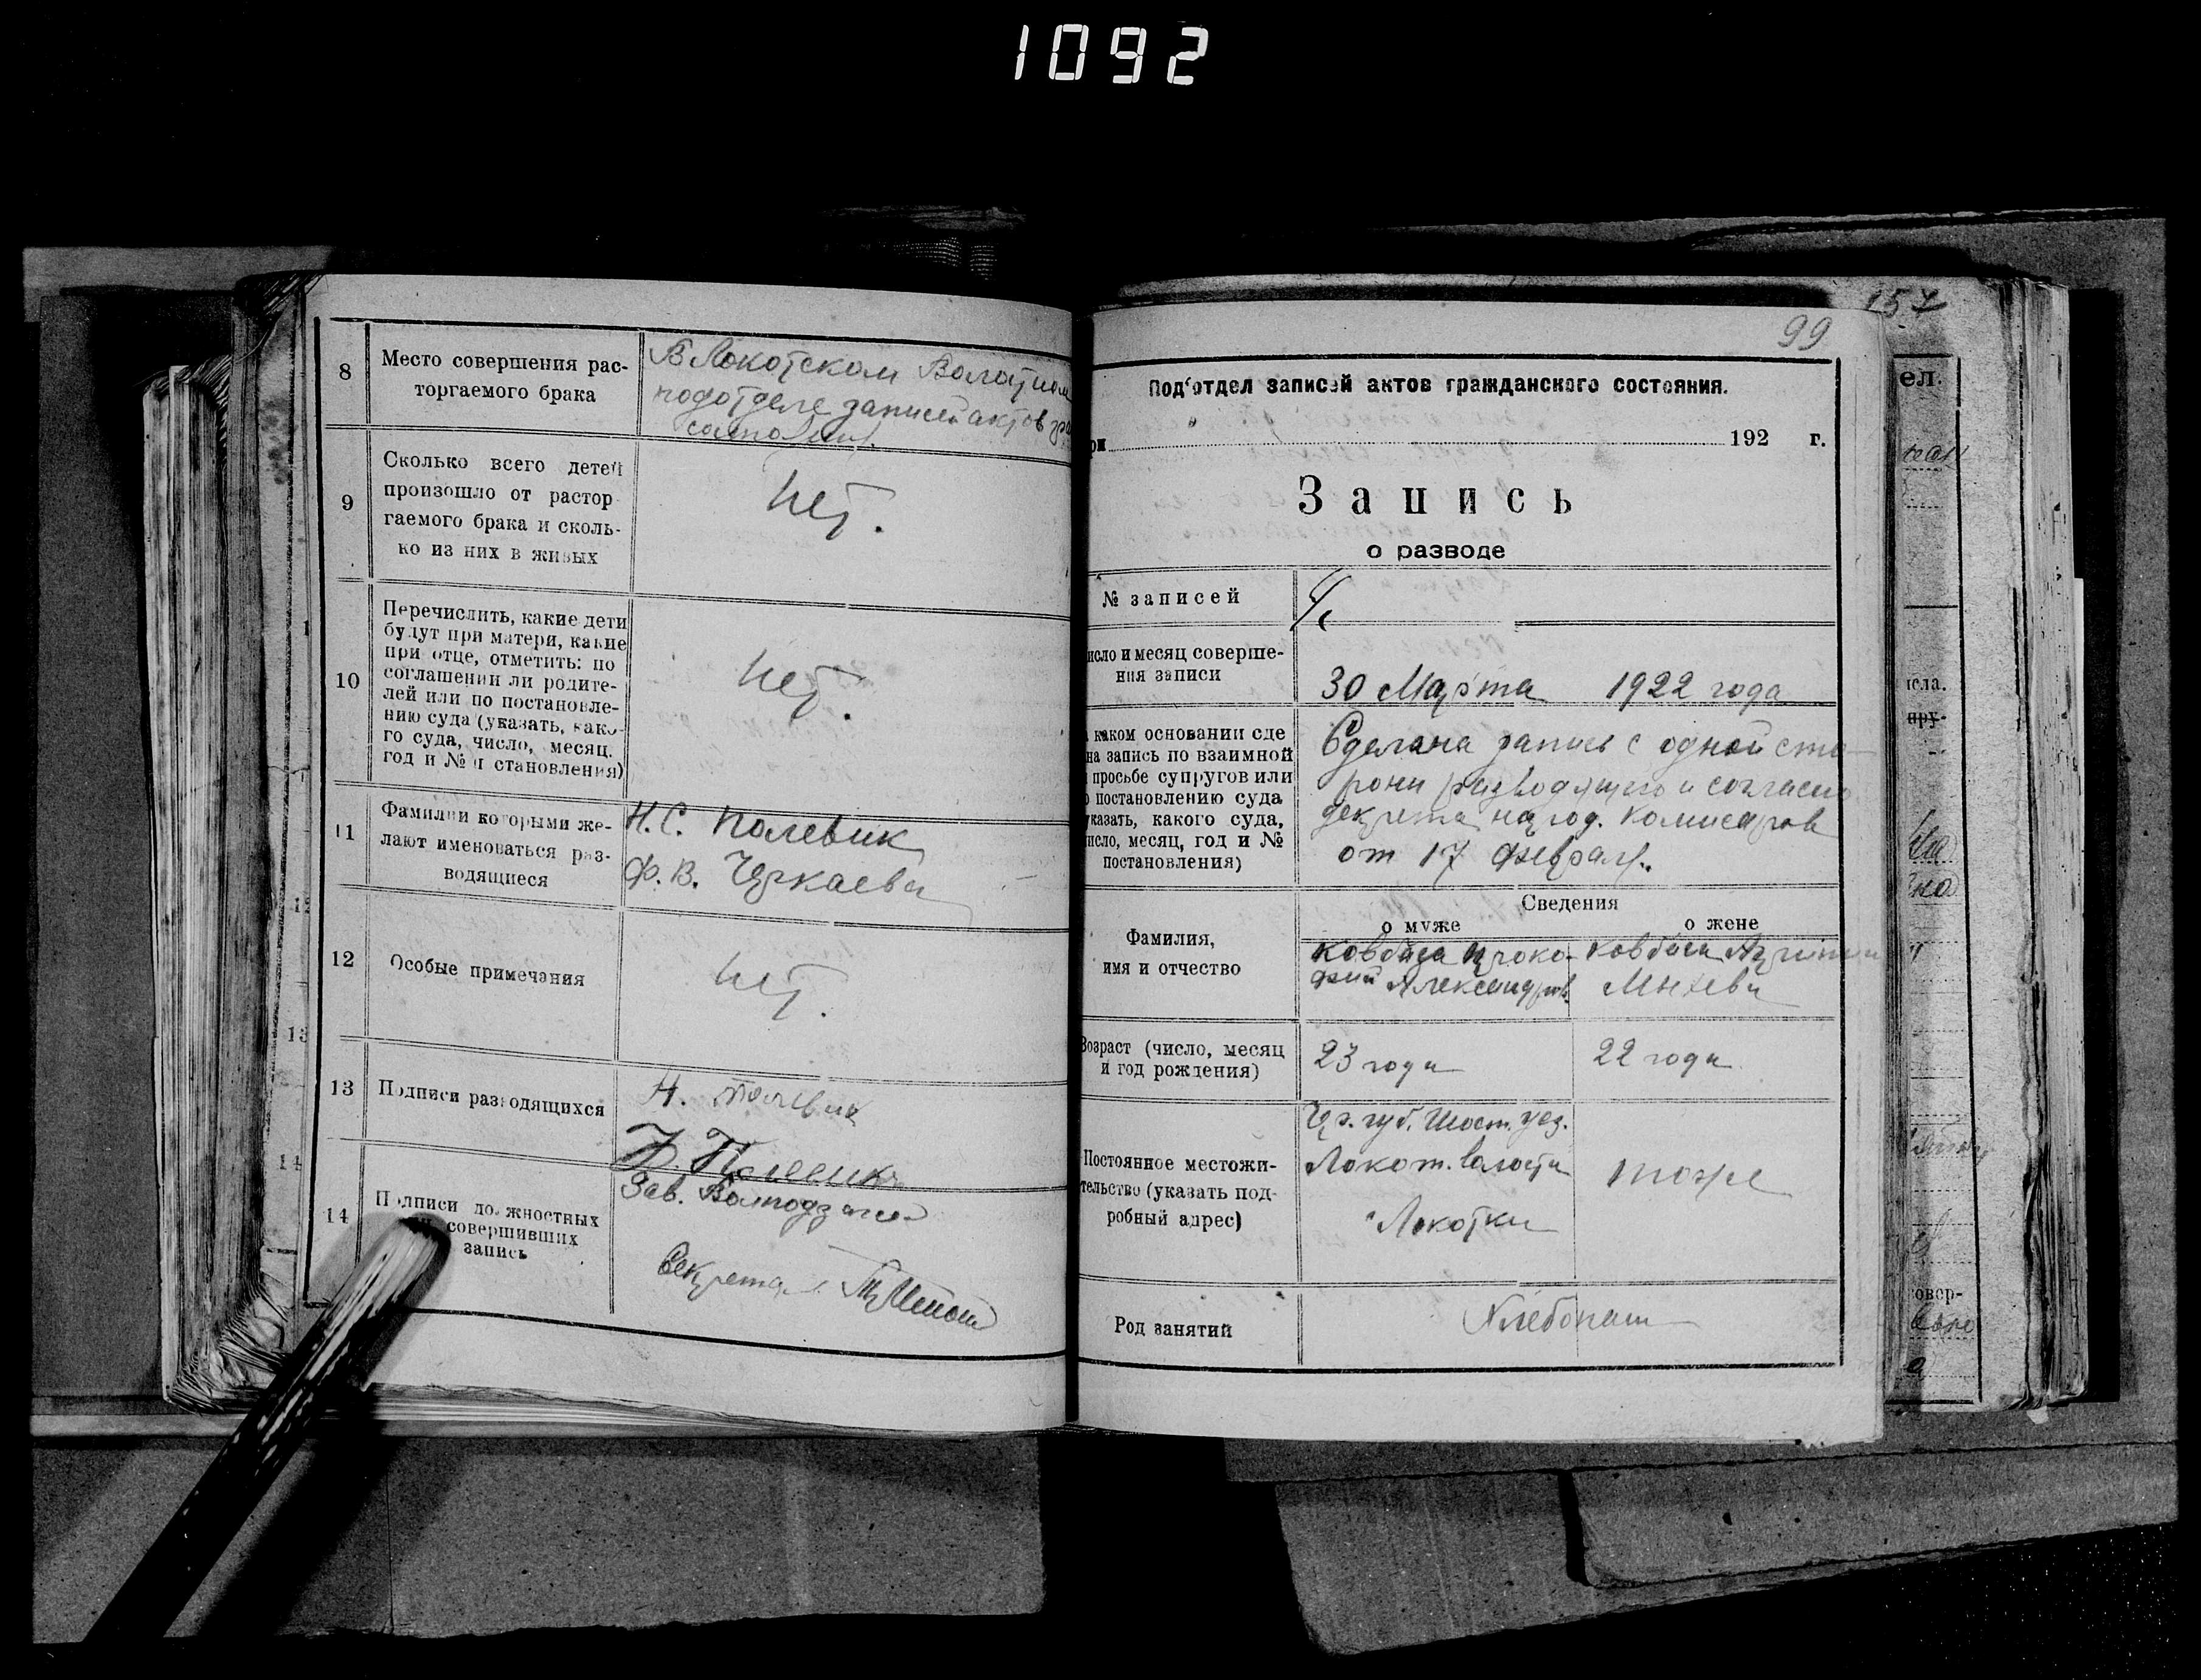 1092
8
Место совершения рас-
торгаемого брака
В Локотском Волостном
подотделе записей актов гра
9
Сколько всего детей
произошло от растор
гаемого брака и сколь-
ко из них в живых
нет.
10
Перечислить, какие дети
будут при матери, какие
при отце, отметить: по
соглашении ли родите-
лей или по постановле-
нию суда (указать, како-
го суда, число, месяц.
год и № п становления)
нет.
11
Фамилии которыми же-
лают именоваться раз-
водящиеся
Н. С. Полевик
Ф. В. Чуркаева
12
Особые примечания
нет.
13
Подписи разводящихся
Н. Полевик
14
Подписи должностных
совершивших
запись
Зав.
Секретар
157
99
Под'отдел записей актов гражданского состояния.
ри 192 г.
Запись
о разводе
№ записей
4
исло и месяц соверше-
ния записи
30 Марта 1922 года
каком основании сде
на запись по взаимной
просьбе супругов или
о постановлению суда
указать, какого суда,
исло, месяц, год и №
постановления)
Сделана запись с одной сто-
рони разводящегося и согласно
декрета народ. Комисаров
от 17 февраля.
Сведения
о муже
о жене
Фамилия,
имя и отчество
Ковбаса Проко-
фий Александров.
Ковбаса
Возраст (число, месяц
и год рождения)
23 года
22 года
Постоянное местожи-
тельство (указать под-
робный адрес)
Чр. губ. Шост. уез.
Локот. волости
Локотки
тоже
Род занятий
Хлебопаш
ел.
исла.
пру-
овер-